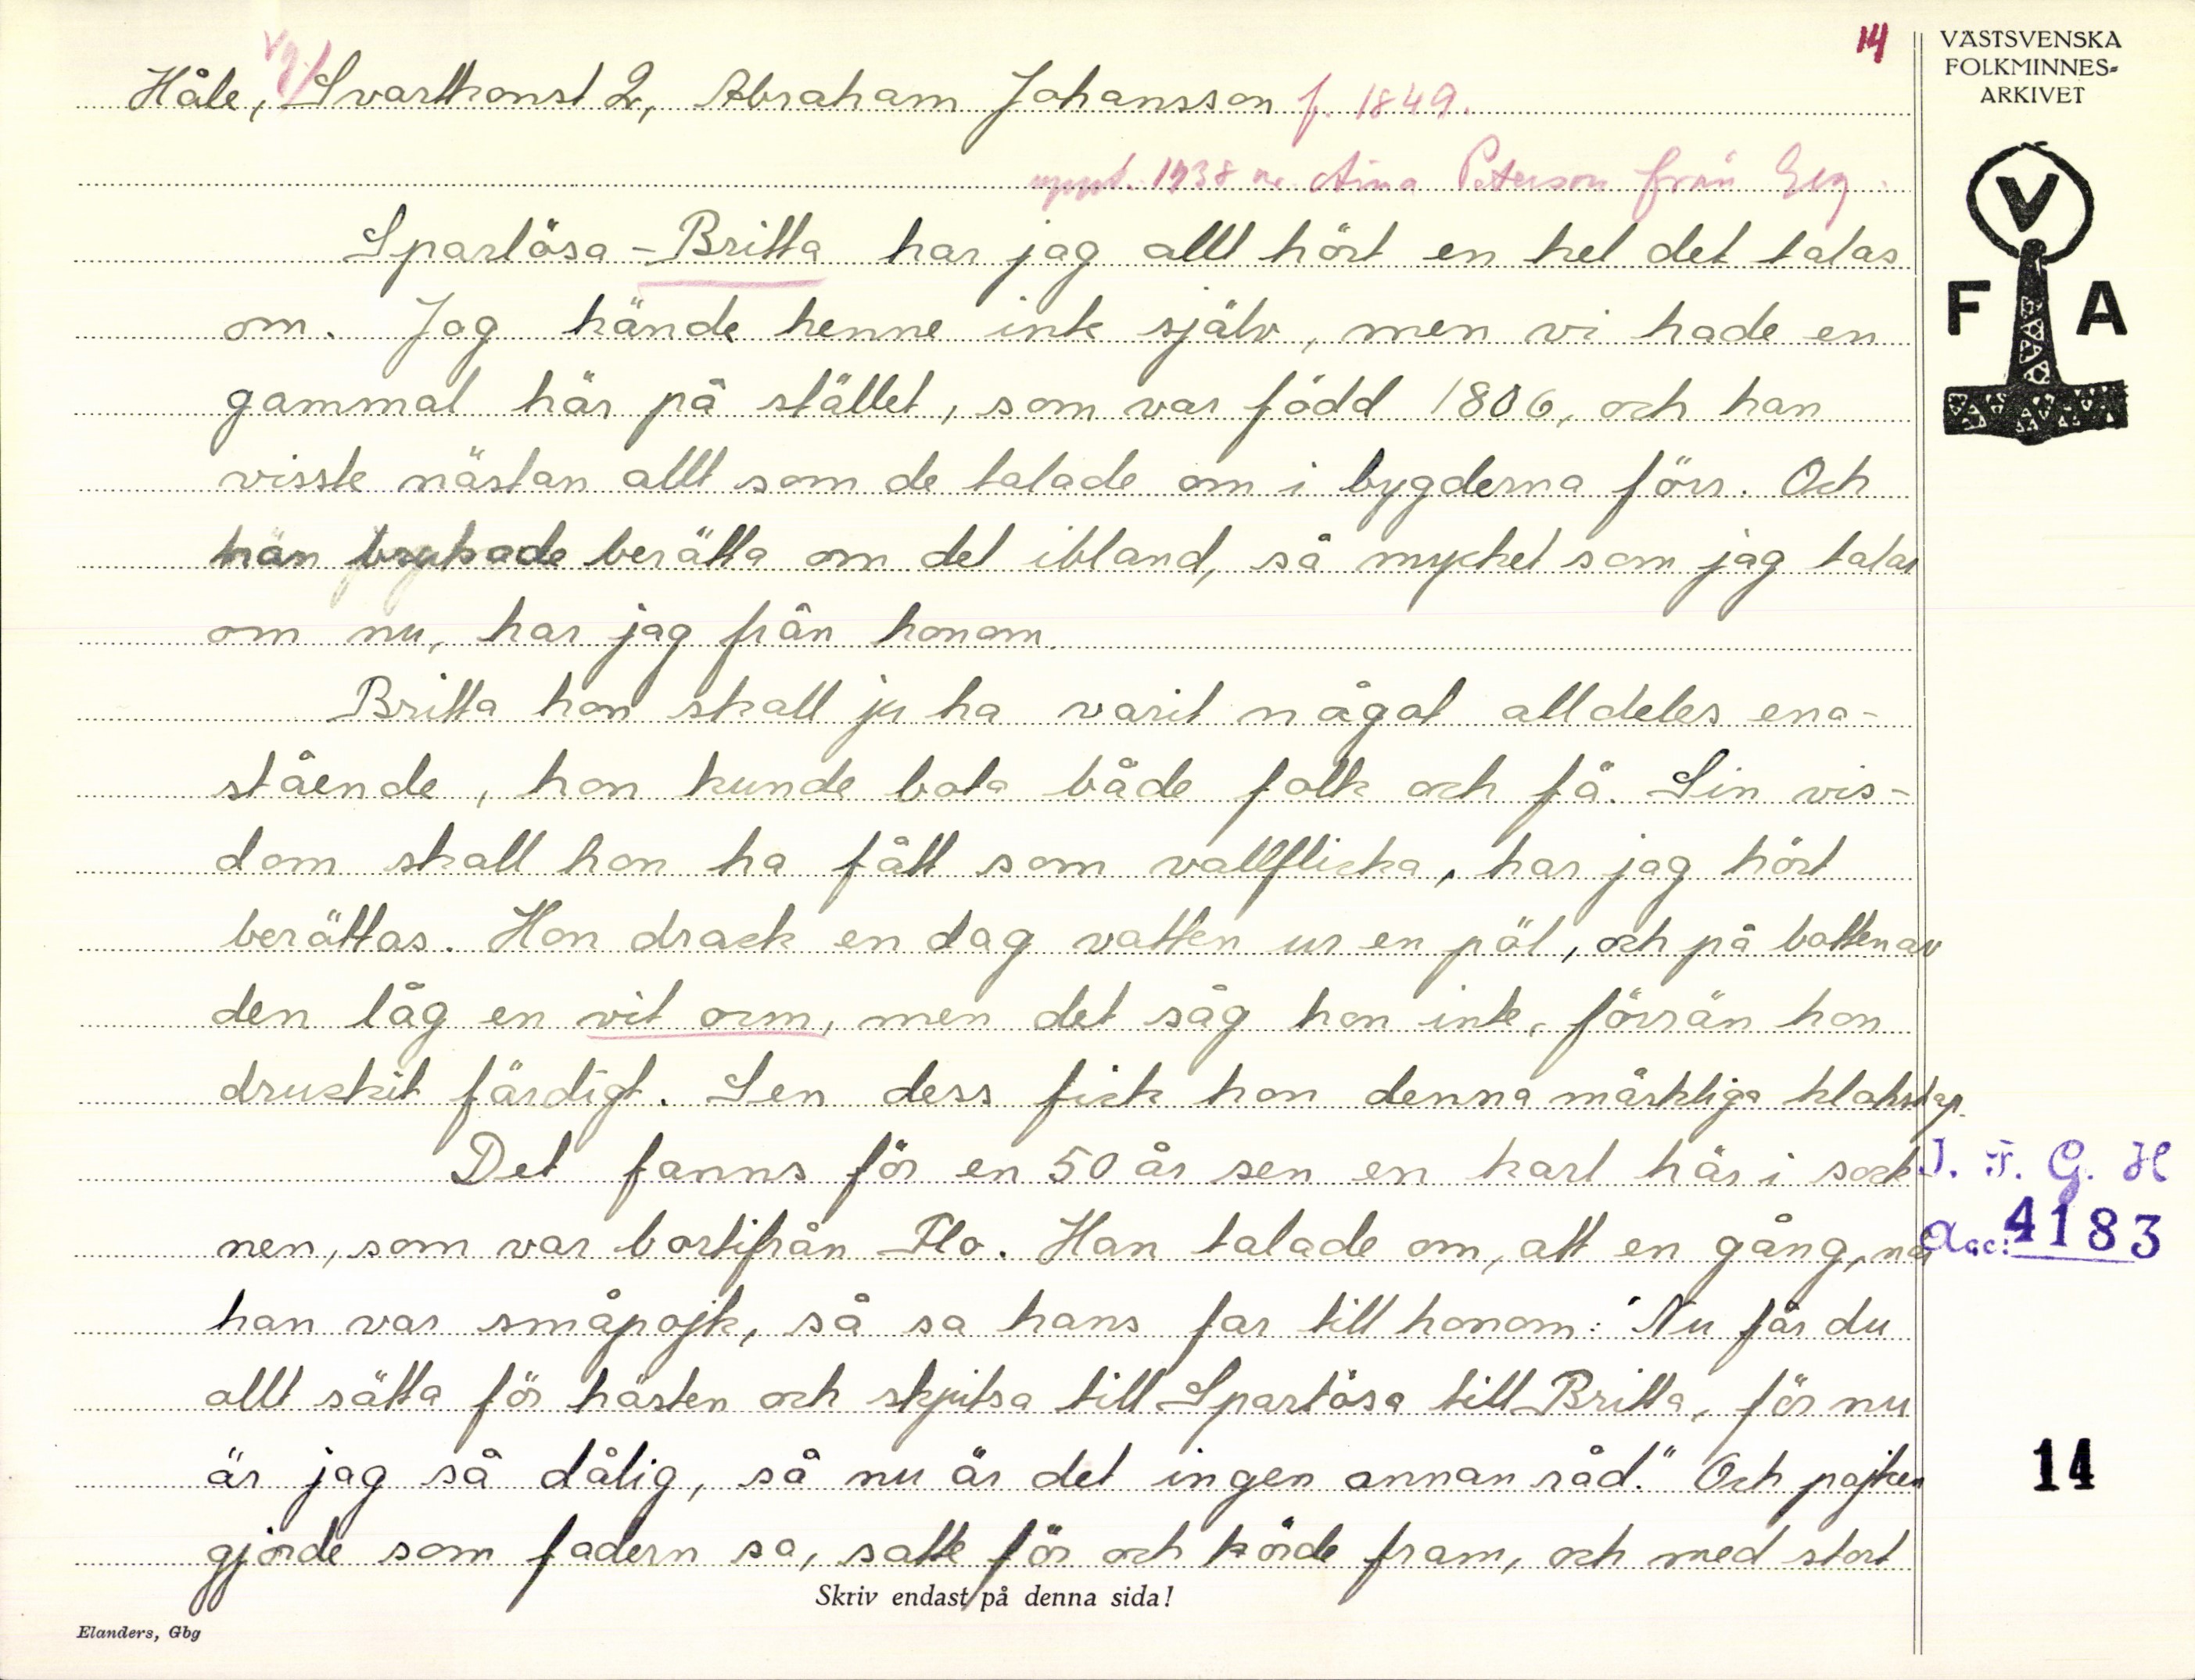 14
VÄSTSVENSKA
FOLKMINNES-
ARKIVET
V
F A
Vg.
Håle, Svarthonst 2, Abraham Johansson f. 1849.
uppt. 1938 av Aina Peterson från Gbg.
Sparlösa-Britta har jag allt hört en hel det talas
om. Jag kände henne inte själv, men vi hade en
gammal här på stället, som var född 1806, och han
visste nästan allt som de talade om i bygderna förr. Och
han brukade berätta om det ibland, så mycket som jag talar
om nu, har jag från honom.
Britta hon skall ju ha varit något alldeles ena-
stående, hon kunde bota både folk och fä. Sin vis-
dom skall hon ha fått som vallflicka, har jag hört
berättas. Hon drack en dag vatten ur en pöl, och på botten av
den låg en vit orm, men det såg hon inte, förrän hon
druckit färdigt. Sen dess fick hon denna märkliga klokskap.
Det fanns för en 50 år sen en karl här i sock
nen, som var bortifrån Flo. Han talade om, att en gång, när
han var småpojk, så sa hans far till honom: "Nu får du
allt sätta för hästen och skjutsa till Sparlösa till Britta, för nu
är jag så dålig, så nu är det ingen annan råd." Och pojken
gjorde som fadern sa, satte för och körde fram, och med stort
I. F. G. H
Acc: 4183
14
Skriv endast på denna sida!
Elanders, Gbg